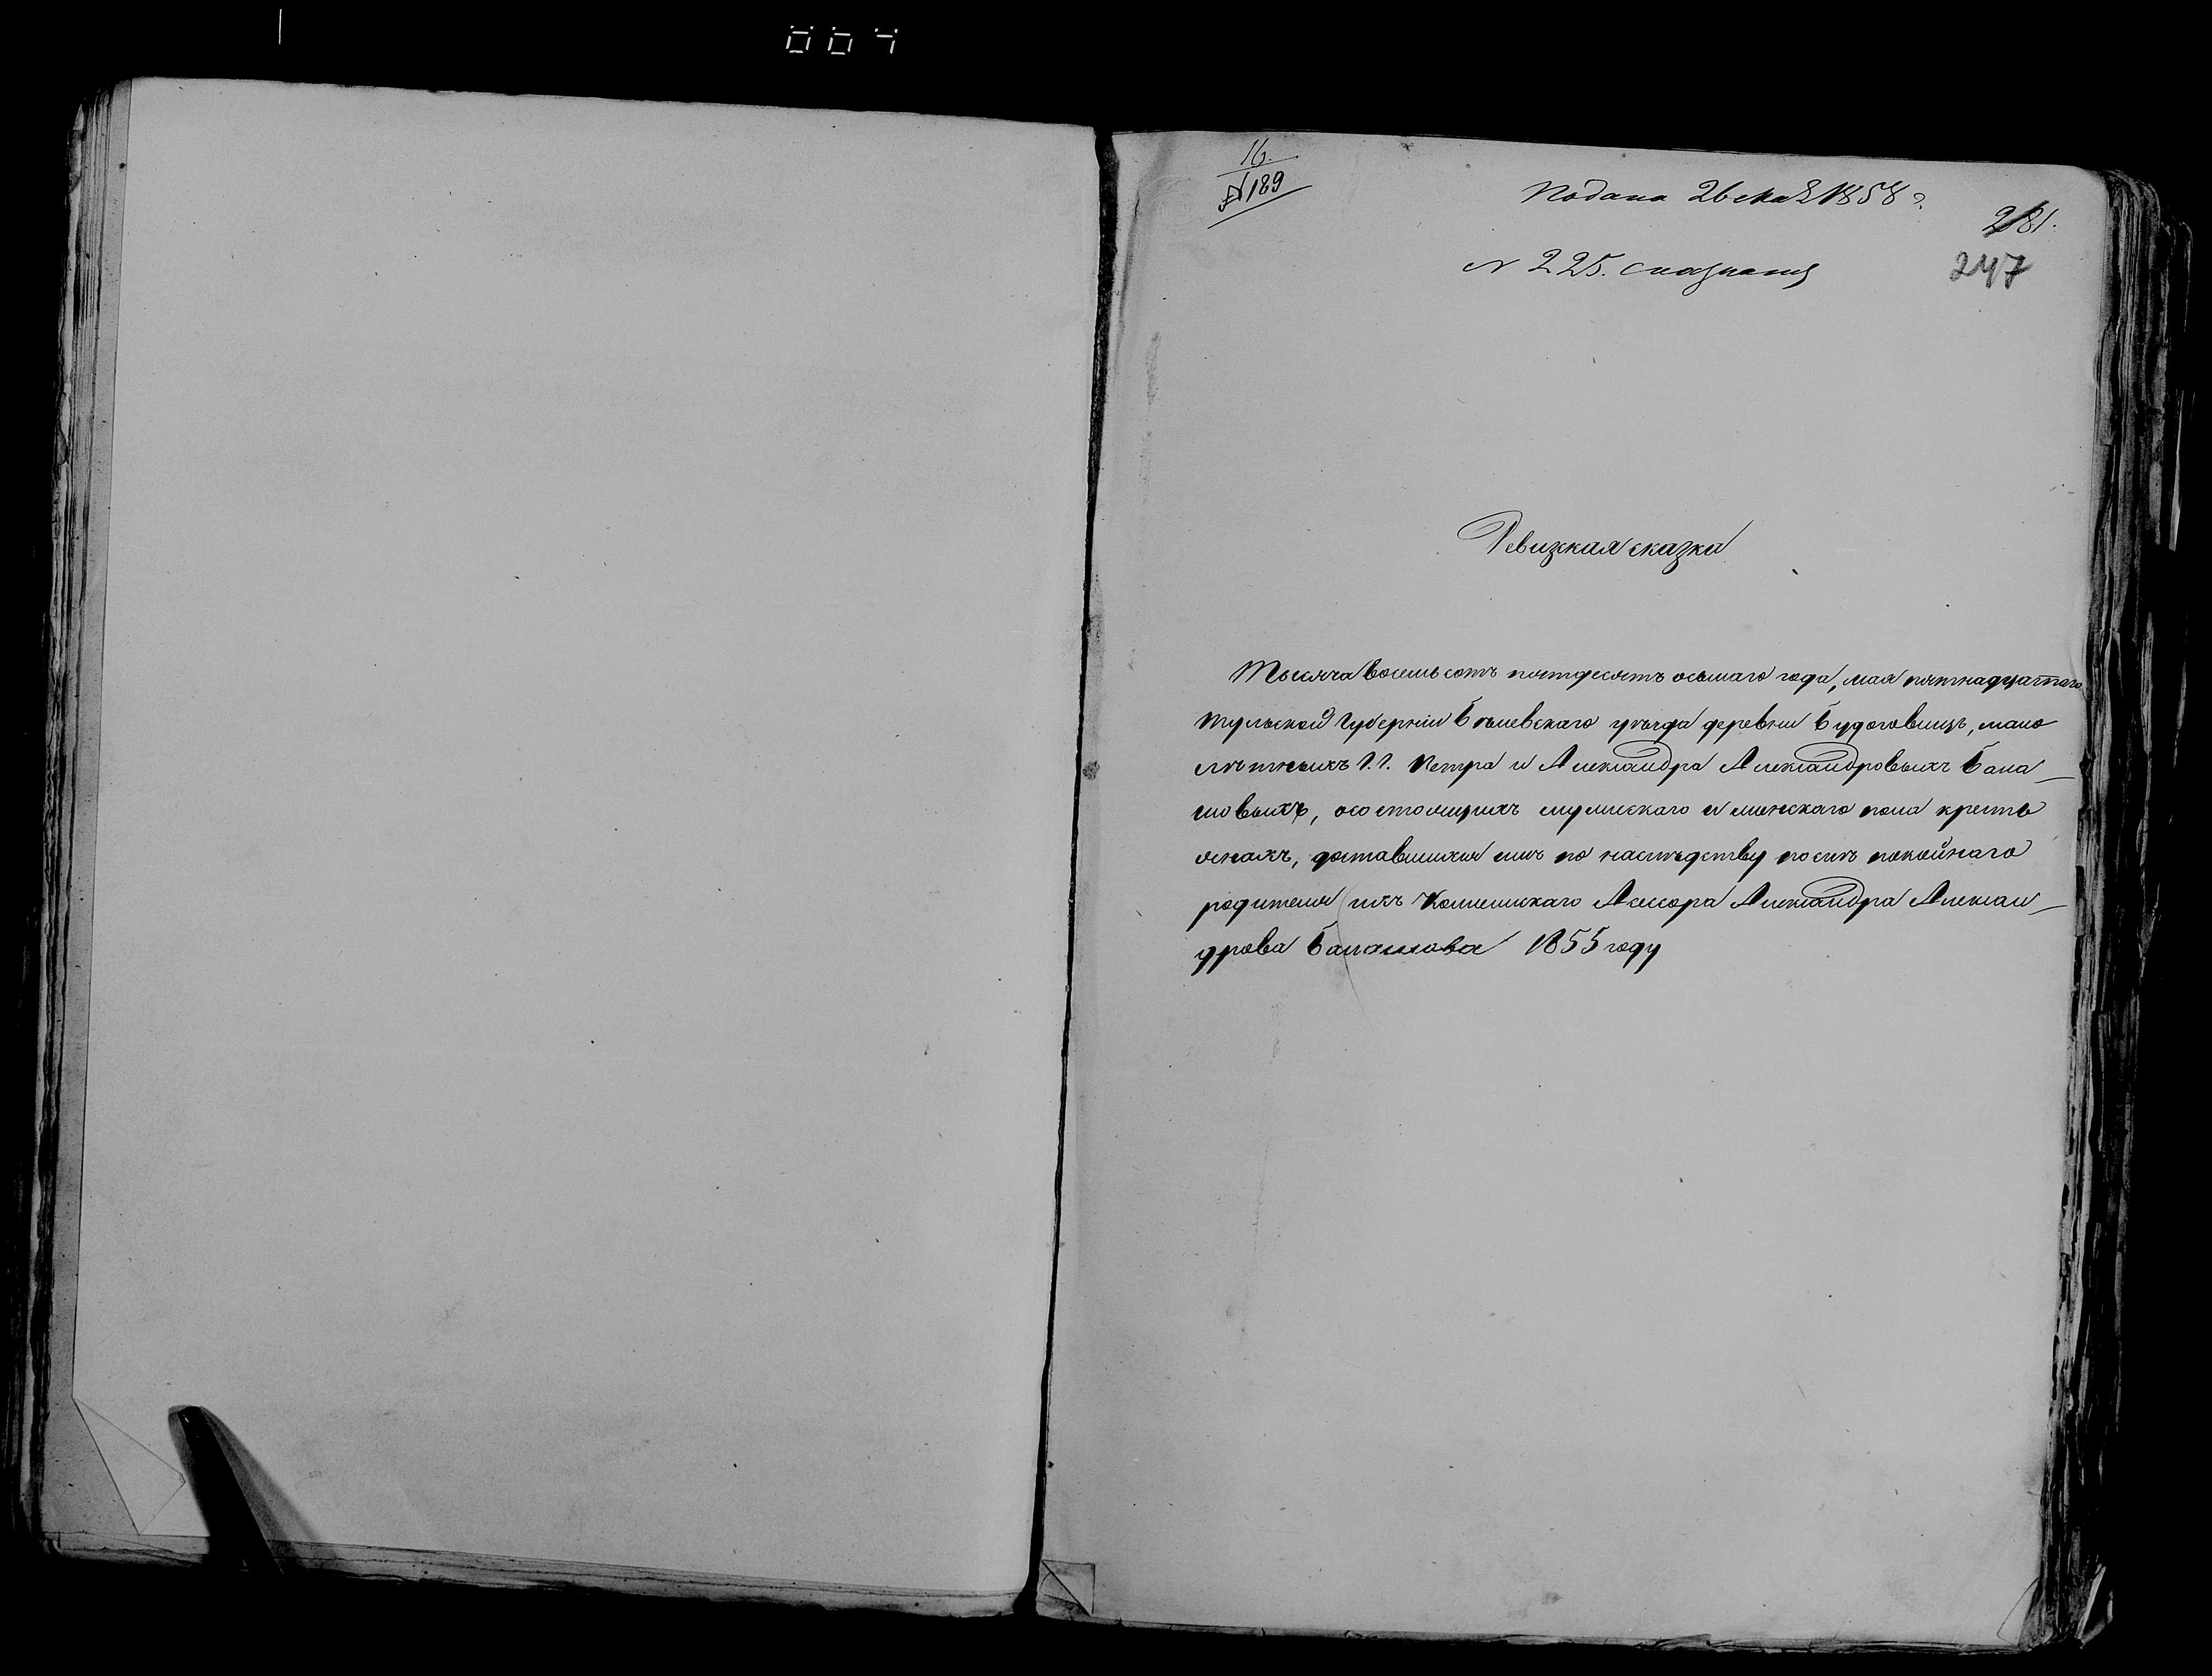 004
16.
№ 189
Подана 26 мая 1858 г.
281.
№ 225.
247
Ревизская сказка
Тысяча восемь сотъ пятдесятъ осьмаго года, мая пятнадцатаго
Тульской Губерніи Бѣлевскаго уѣзда деревни Будоговищъ, мало
лѣтныхъ Г.г. Петра и Александра Александровыхъ Бала
шовыхъ, о состоящихъ мужескаго и женскаго пола кресть
янахъ, доставшихся имъ по наслѣдству послѣ покойнаго
родителя ихъ Коллежскаго Асессора Александра Алексан
дрова Балашова 1855 году